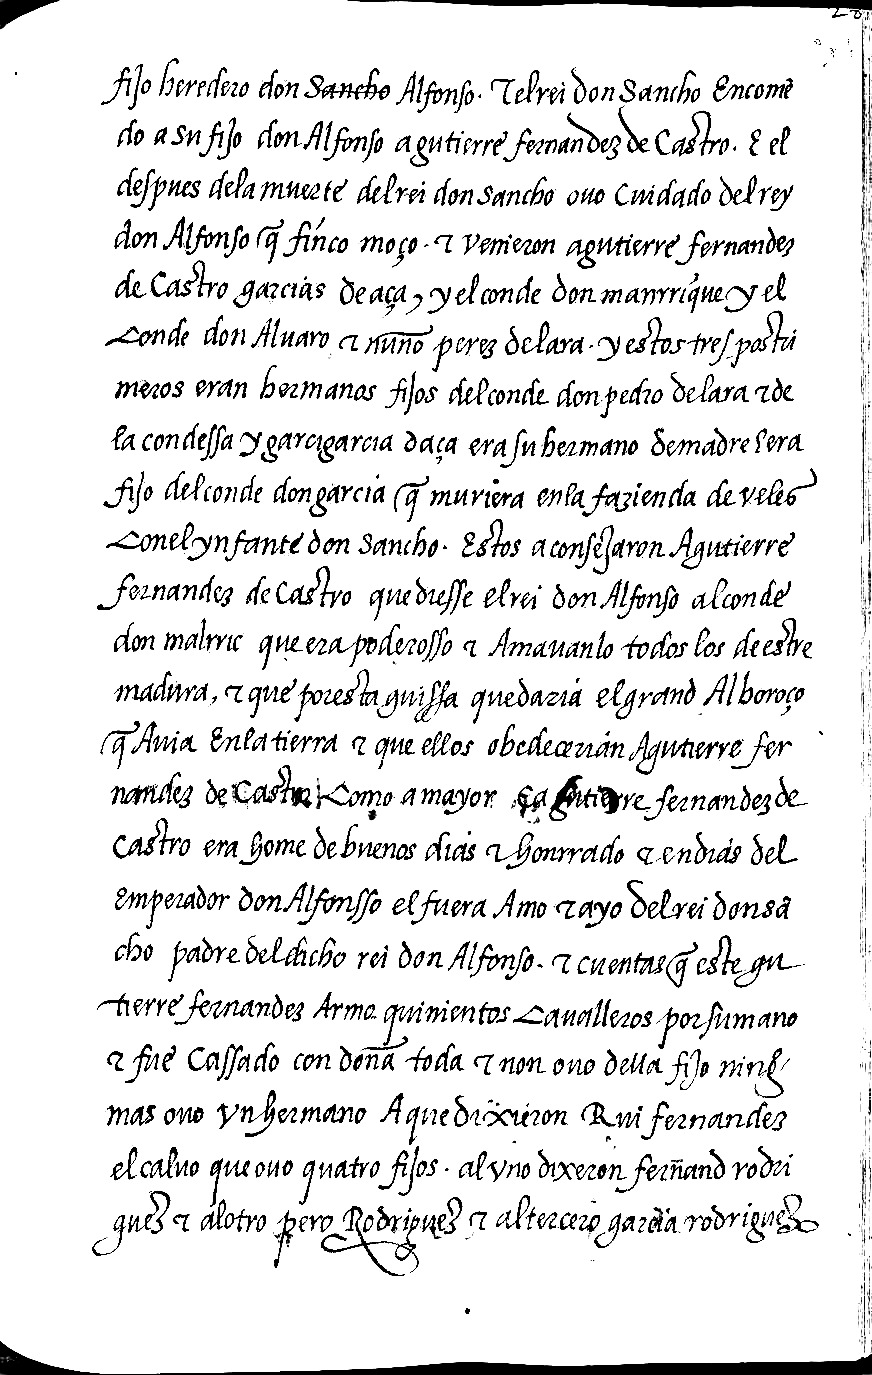 fijo heredero don Sancho Alfonso. τ el rei don Sancho Encomē
do a su fijo don Alfonso a gutierre fernandez de Castro. E el
despues dela muerte del rei don Sancho ouo Cuidado del rey
don Alfonso q̃ finco moço. τ venieron agutierre fernandez
de Castro garcias de aça, y el conde don manrrique y el
Conde don Aluaro τ nuño perez de lara. y estos tres postri
meros eran hermanos fijos del conde don pedro de lara τ de
la condessa y garcigarcia daça era su hermano de madre l era
fijo del conde don garcia q̃ muriera en la fazienda de veles
Con el ynfante don Sancho. Estos aconsejaron Agutierre
fernandez de Castro que diesse el rei don Alfonso al conde
don malrric que era poderosso τ Amauanlo todos los de estre
madura, τ que por esta guissa quedaria el grand Alboroço
q̃ Auia En la tierra τ que ellos obedecerian Agutierre fer
nandez de Castro Como a mayor Ca gutierre fernandez de
Castro era home de buenos dias τ honrrado τ en dias del
Emperador don Alfonsso el fuera Amo τ ayo del rei don sā
cho padre del dicho rei don Alfonso. τ cuentas q̃ este gu
tierre fernandez Armo quinientos Caualleros por su mano
τ fue Cassado con doña toda τ non ouo della fijo ning
mas ouo yn hermano A que dixieron Rui fernandez
el caluo que ouo quatro fijos. al vno dixeron fern̄and rodri
guez τ alotro pero Rodriguez τ al tercero garcia rodriguez